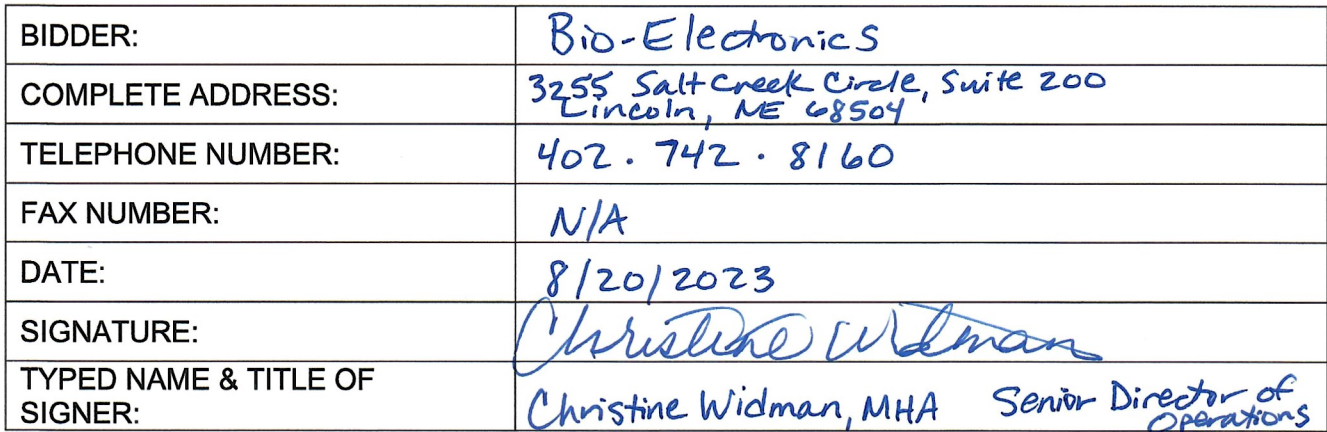 BIDDER: Bio-Electronics
COMPLETE ADDRESS: 3255 Salt Creek Circle, Suite 200
Lincoln, NE 68504
TELEPHONE NUMBER: 402.742.8160
FAX NUMBER: N/A
DATE: 8/20/2023
SIGNATURE: Christine Widman
TYPED NAME & TITLE OF
SIGNER: Christine Widman, MHA Senior Director of
Operations